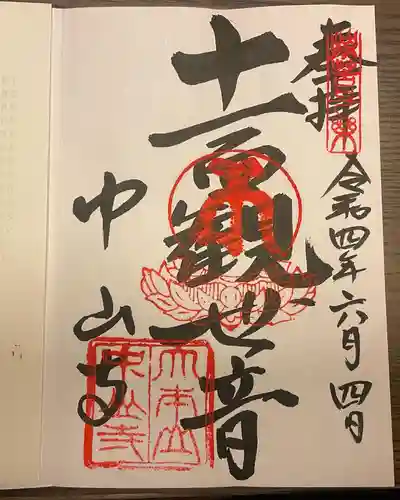 奉拝
令和四年六月四日
十一面観世音
中山寺
大本山
中山寺